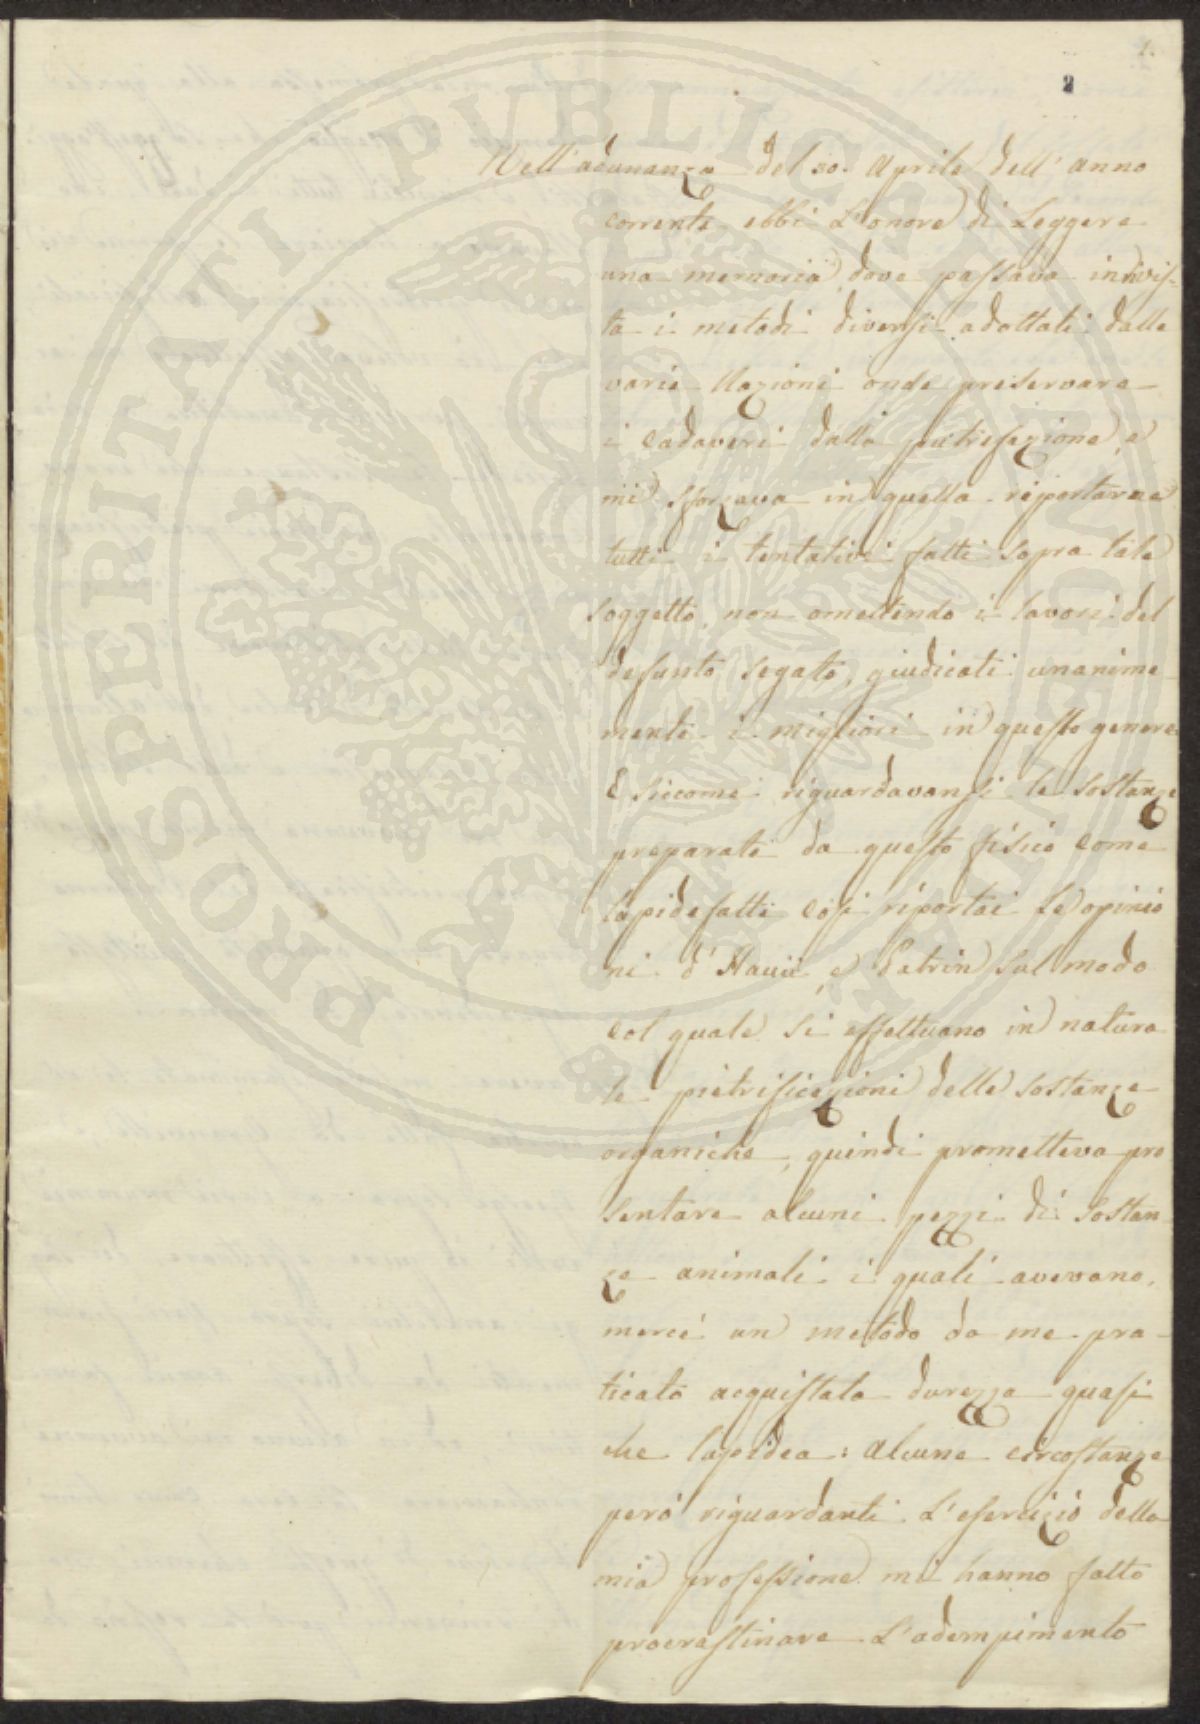 1.
2
Nell'adunanza del 30. Aprile dell'anno
corrente ebbi l'onore di Leggere
una memoria, dove passava in rivis-
ta i metodi diversi adottati dalle
varie Nazioni onde preservare
i Cadaveri dalla putrefazione, e
mi sforzava in quella riportarne
tutti i tentativi fatti sopra tale
soggetto, non omettendo i lavori del
defunto Segato, giudicati unanime
mente i migliori in questo genere
E siccome riguardavansi le sostanze
preparate da questo fisico come
lapidefatte così riportai le opinio
ni d'Hauii, e Patrin sul modo
col quale si effettuano in natura
le pietrificazioni delle sostanze
organiche, quindi prometteva pre
sentare alcuni pezzi di sostan
ze animali i quali avevano,
mercè un metodo da me pra-
ticato acquistata durezza quasi
che lapidea: Alcune circostanze
però riguardanti l'esercizio della
mia professione mi hanno fatto
procrastinare l'adempimento
PROSPERITATI PVBLICAE AVGENDAE